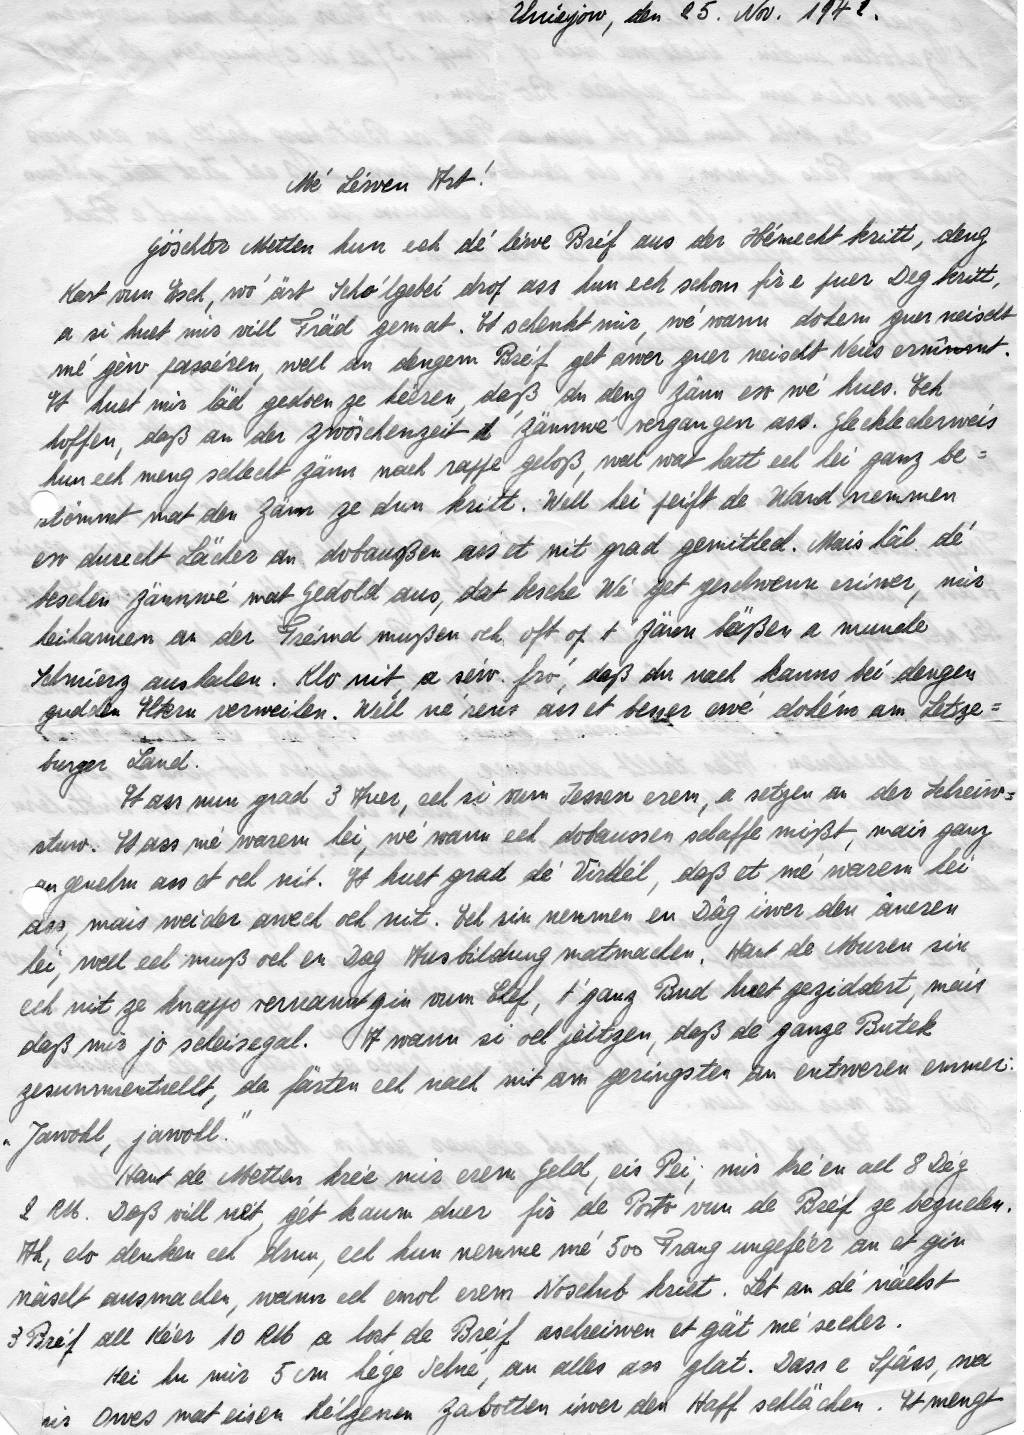 Uniejow, den 25. Nov. 1942.
Mé Léiwen Art!
Göschter Metten hun ech dé léiwe Bréf aus der Hémecht kritt, deng
Kart vum Esch, wó ärt Schó'lgebei drop ass hun ech schom fir e puer Deg kritt,
a si huet mir vill Fräd gemat. Et schenkt mir, wé wann dohem guer neischt
mé géw passéiren, well an dengem Bréf get awer guer neischt Neies ernimmt.
Et huet mir läd gedoen ze héieren, daß du deng Zänn eso wé hues. Ech
hoffen, daß an der Zwöschenzeit d'Zännwé vergangen ass. Glecklecherweis
hun ech meng schlecht Zänn nach raffe geloß, wal wat hätt ech hei ganz be=
stömmt mat den Zänn ze dun kritt. Well hei peift de Wand nemmen
eso duerecht Läcker an dobaußen ass et nit grad gemitlech. Mais hâl dé
beschen Zännwé mat Gedold aus, dat besche Wé get geschwenn eriwer, mir
hei an der Friemd mußen och oft op t'Zänn bäißen a munche
Schmierz aushalen. Klo nit, a séiw fró, daß du nach kanns bei dengen
gudden Eltern verweilen. Well néirens ass et besser ewé dohém am Letze=
burger Land.
Et ass nun grad 3 Auer, ech si vum Iessen erem, a setzen an der Schreiw=
stuw. Et ass mé warem hei, wé wann ech dobaussen schaffe mißt, mais ganz
angenehm ass et och nit. Et huet grad dé Virdél, daß et mé warem hei
ass, mais weider awech och nit. Ech sin nemmen en Dâg iwer den âneren
hei, well ech muß och en Dag Ausbildung matmachen. Haut de Muren sin
ech nit ze knapp vernannt gin vum Chef, t'ganz Bud huet geziddert, mais
daß mir jo scheisegal. A wann si och jeitzen, daß de ganze Butek
zesummentrellt, da färten ech nach nit am geringsten an entweren emmer:
"Jawohl, jawohl."
Haut de Metten krée mir erem Geld, eis Pei, mir kré'en all 8 Deg
2 RM. Daß vill nét, gét kaum duer fir de Porto vun de Bréf ze bezuelen.
Ah, elo denken ech drun, ech hun nemme mé 500 Frang ungeféer an et gin
näischt ausmachen, wann ech emol erem Noschub kriet. Let an dé nächst
3 Bréf all Kéer 10 RM a lost de Bréf aschreiwen et gät mé secher.
Hei hu mir 5 cm hége Schné, an alles ass glat. Dass e Spâss, wa
mir Owes mat eisen hélzenen Zabotten iwer den Haff schlächen. Et mengt